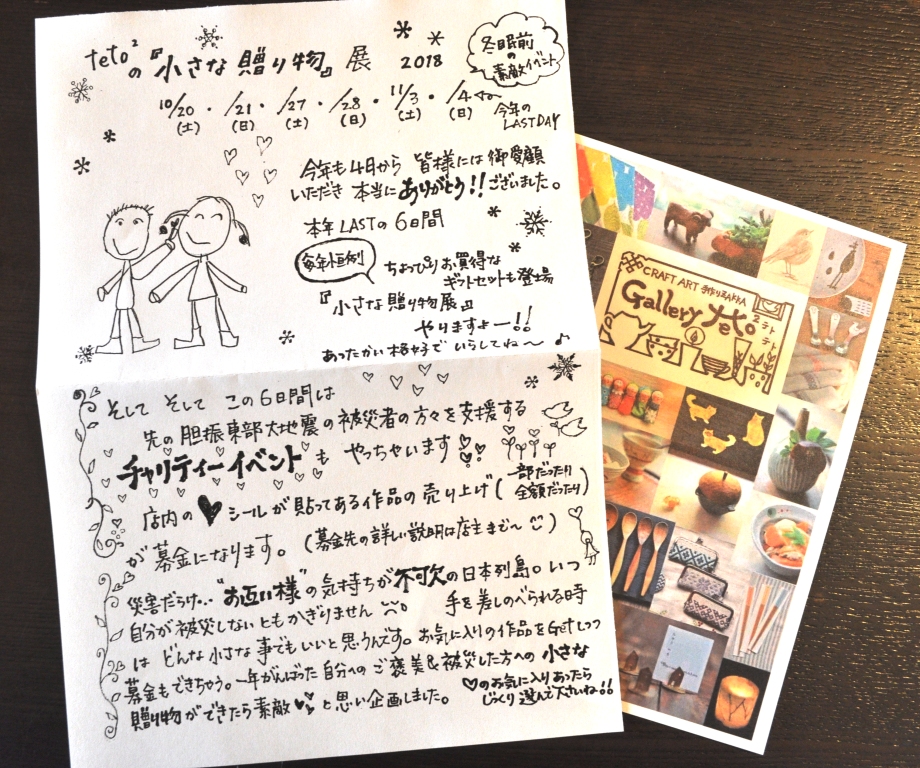 teto²の『小さな贈り物』展 2018
冬眠前
の
素敵イベント
10/20・/21・/27・/28・11/3・/4
(土) (日) (土) (日) (土) (日)
今年の
LASTDAY
今年も4月から 皆様には御愛顧
いただき 本当にありがとう!!ございました。
本年LASTの6日間
毎年恒例
ちょっぴりお買得な
ギフトセットも登場
『小さな贈り物展』
やりますよー!!
あったかい格好でいらしてね〜♪
そして そして この6日間は
先の胆振東部大地震の被災者の方々を支援する
チャリティーイベントも やっちゃいます
店内の♥シールが貼ってある作品の売り上げ(一部だったり
全額だったり)
が募金になります。(募金先の詳しい説明は店主まで〜)
災害だらけ…"お互い様"の気持ちが不可欠の日本列島。いつ
自分が被災しないともかぎりません。 手を差しのべられる時
は どんな小さな事でもいいと思うんです。お気に入りの作品をGetしつつ
募金もできちゃう。一年がんばった自分へのご褒美&被災した方への小さな
贈り物ができたら素敵♥と思い企画しました。
♡のお気に入りあったら
じっくり選んで下さいね!!
CRAFT ART 手作りZAKKA
Gallery teto²
テト
テト